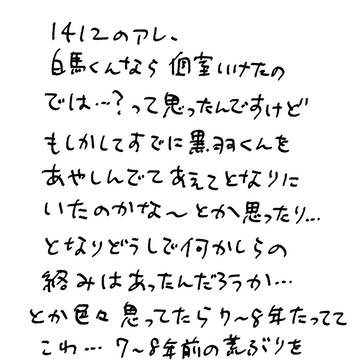 1412のアレ、
白馬くんなら個室いけたの
では…?って思ったんですけど
もしかしてすでに黒羽くんを
あやしんでてあえてとなりに
いたのかな〜とか思ったり…
となりどうしで何かしらの
絡みはあったんだろうか…
とか色々思ってたら7〜8年たってて
こわ…7〜8年前の荒ぶりを